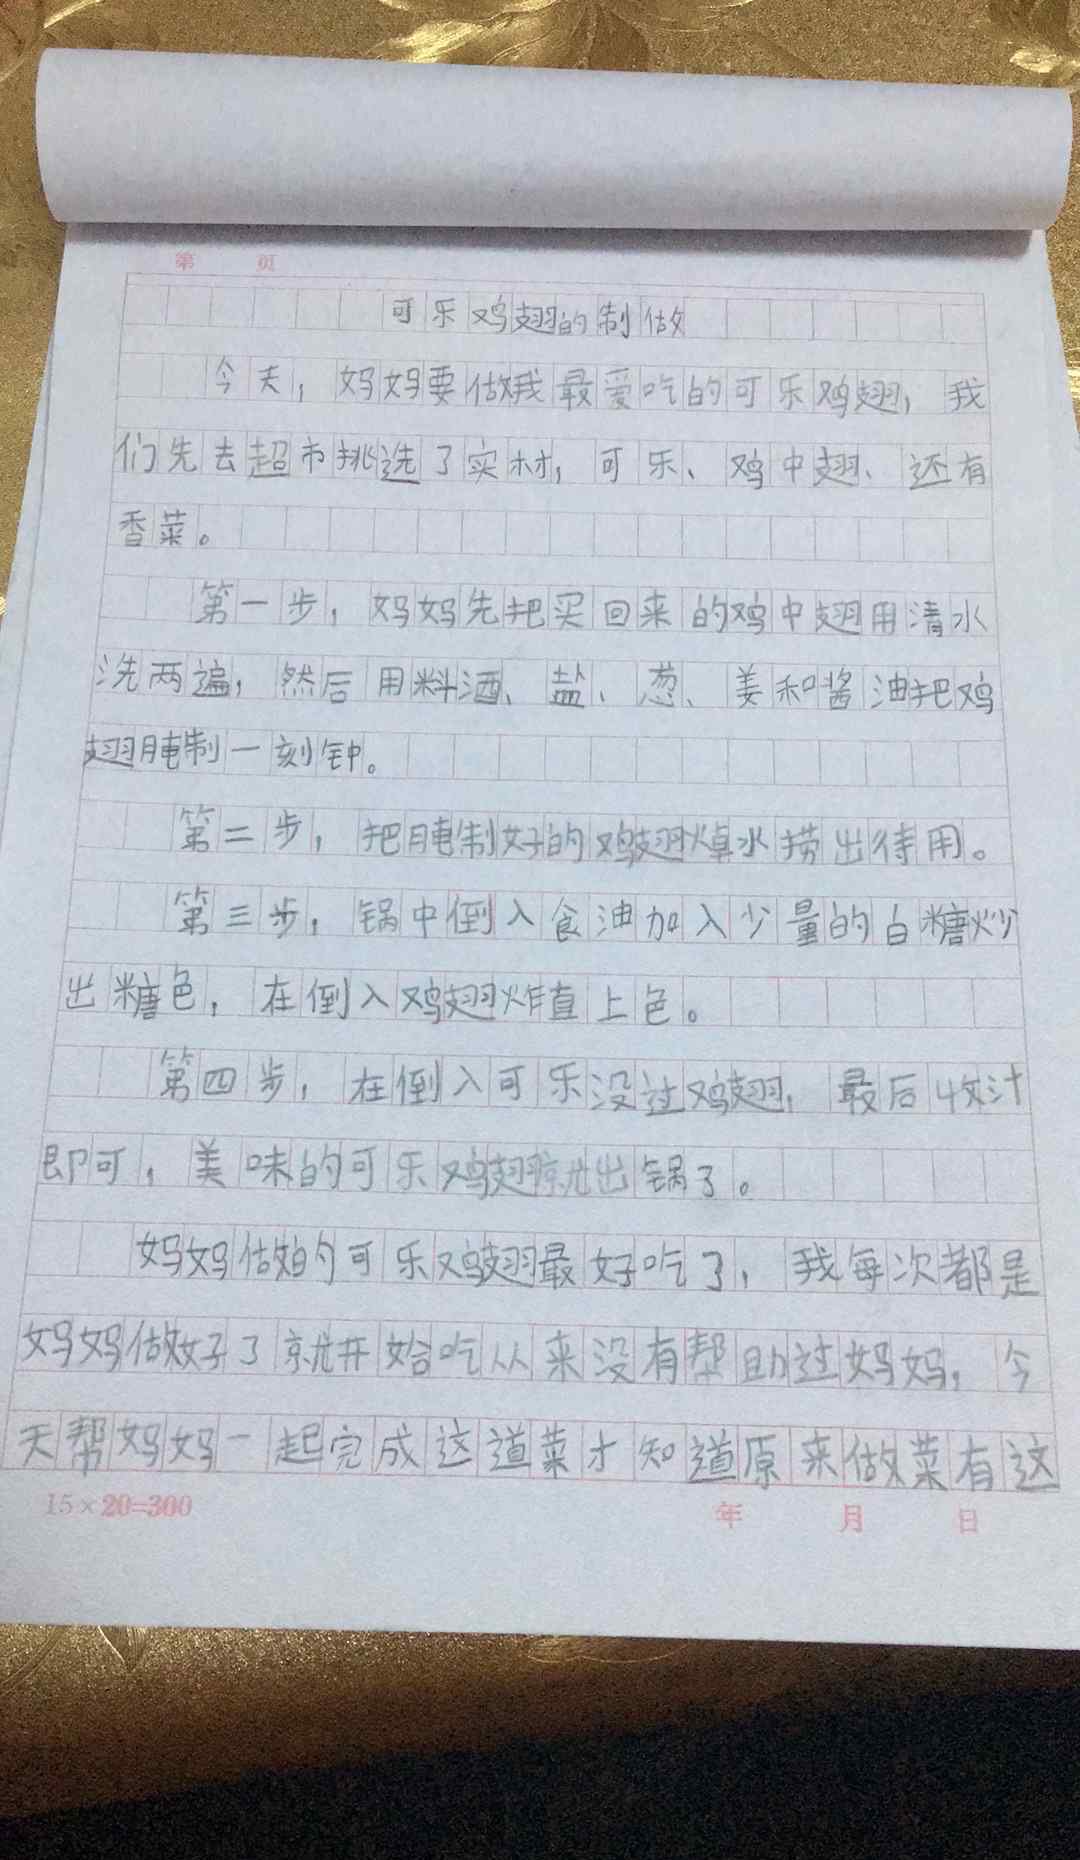 第 页
可乐鸡翅的制做
今天，妈妈要做我最爱吃的可乐鸡翅，我
们先去超市挑选了实材，可乐、鸡中翅、还有
香菜。
第一步，妈妈先把买回来的鸡中翅用清水
洗两遍，然后用料酒、盐、葱、姜和酱油把鸡
翅腌制一刻钟。
第二步，把腌制好的鸡翅焯水捞出待用。
第三步，锅中倒入食油加入少量的白糖炒
出糖色，在倒入鸡翅炸直上色。
第四步，在倒入可乐没过鸡翅，最后收汁
即可，美味的可乐鸡翅就出锅了。
妈妈做的可乐鸡翅最好吃了，我每次都是
妈妈做好了就开始吃从来没有帮助过妈妈，今
天帮妈妈一起完成这道菜才知道原来做菜有这
15×20=300 年 月 日